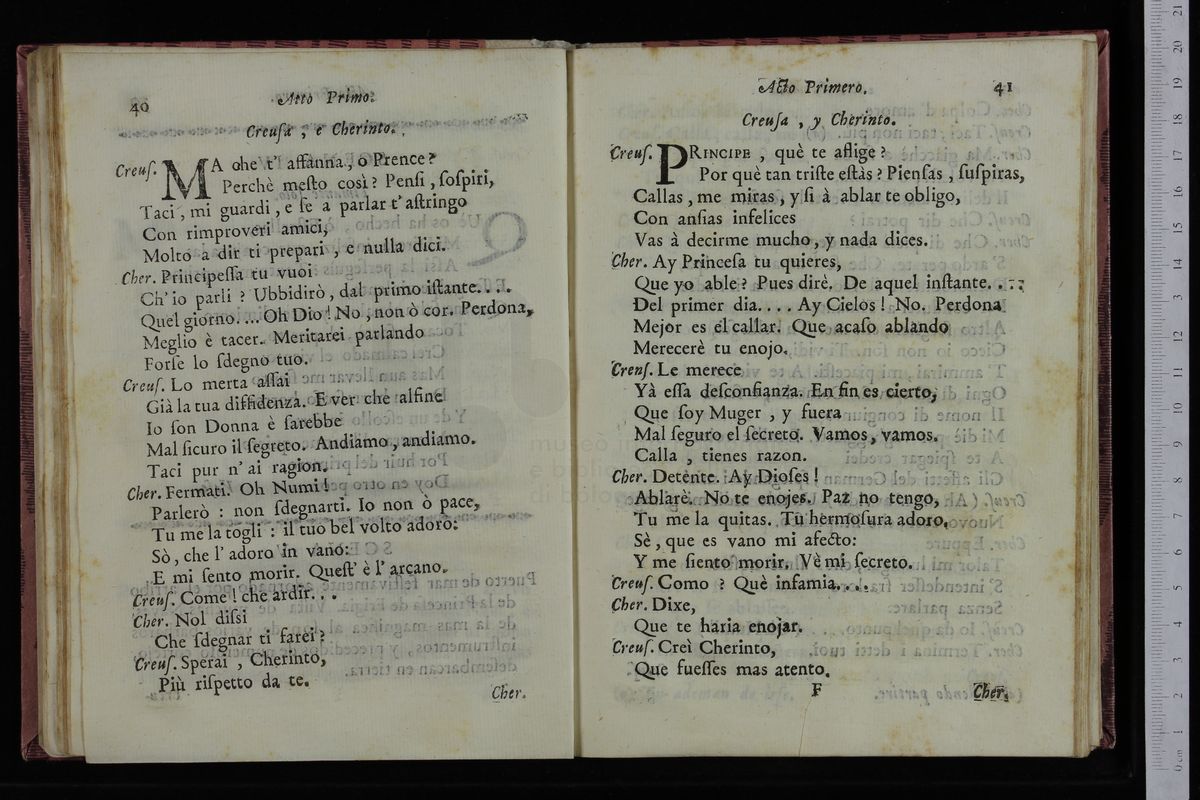 40
Atto Primo.
Creuſa , e Cherinto.
Creuſ. MA che t' affanna , o Prence ?
Perchè meſto così ? Penſi , ſoſpiri,
Taci , mi guardi , e ſe a parlar t' aſtringo
Con rimproveri amici,
Molto a dir ti prepari , e nulla dici.
Cher. Principeſſa tu vuoi
Ch' io parli ? Ubbidirò, dal primo iſtante. . . .
Quel giorno. ... Oh Dio ! No , non ò cor. Perdona,
Meglio è tacer. Meritarei parlando
Forſe lo ſdegno tuo.
Creuſ. Lo merta aſſai
Già la tua diffidenza. E ver che alfine
Io ſon Donna è ſarebbe
Mal ſicuro il ſegreto. Andiamo , andiamo.
Taci pur n' ai ragion.
Cher. Fermati. Oh Numi !
Parlerò : non ſdegnarti. Io non ò pace,
Tu me la togli : il tuo bel volto adoro:
Sò , che l' adoro in vano:
E mi ſento morir. Queſt' è l' arcano.
Creuſ. Come ! che ardir. . .
Cher. Nol diſsi
Che ſdegnar ti farei ?
Creuſ. Sperai , Cherinto,
Più riſpetto da te.
Cher.
Acto Primero.
41
Creuſa , y Cherinto.
Creuſ. PRINCIPE , què te aflige ?
Por què tan triſte eſtàs ? Pienſas , ſuſpiras,
Callas , me miras , y ſi à ablar te obligo,
Con anſias infelices
Vas à decirme mucho , y nada dices.
Cher. Ay Princeſa tu quieres,
Que yo able ? Pues dirè. De aquel inſtante. . . .
Del primer dia. . . . Ay Cielos ! No. Perdona
Mejor es el callar. Que acaſo ablando
Merecerè tu enojo.
Creuſ. Le merece
Yà eſſa deſconfianza. En fin es cierto,
Que ſoy Muger , y fuera
Mal ſeguro el ſecreto. Vamos, vamos.
Calla , tienes razon.
Cher. Detènte. Ay Dioſes !
Ablarè. No te enojes. Paz no tengo,
Tu me la quitas. Tu hermoſura adoro,
Sè , que es vano mi afecto:
Y me ſiento morir. Vè mi ſecreto.
Creuſ. Como ? Què infamia. . . .
Cher. Dixe,
Que te haria enojar.
Creuſ. Creì Cherinto,
Que fueſſes mas atento.
F
Cher.